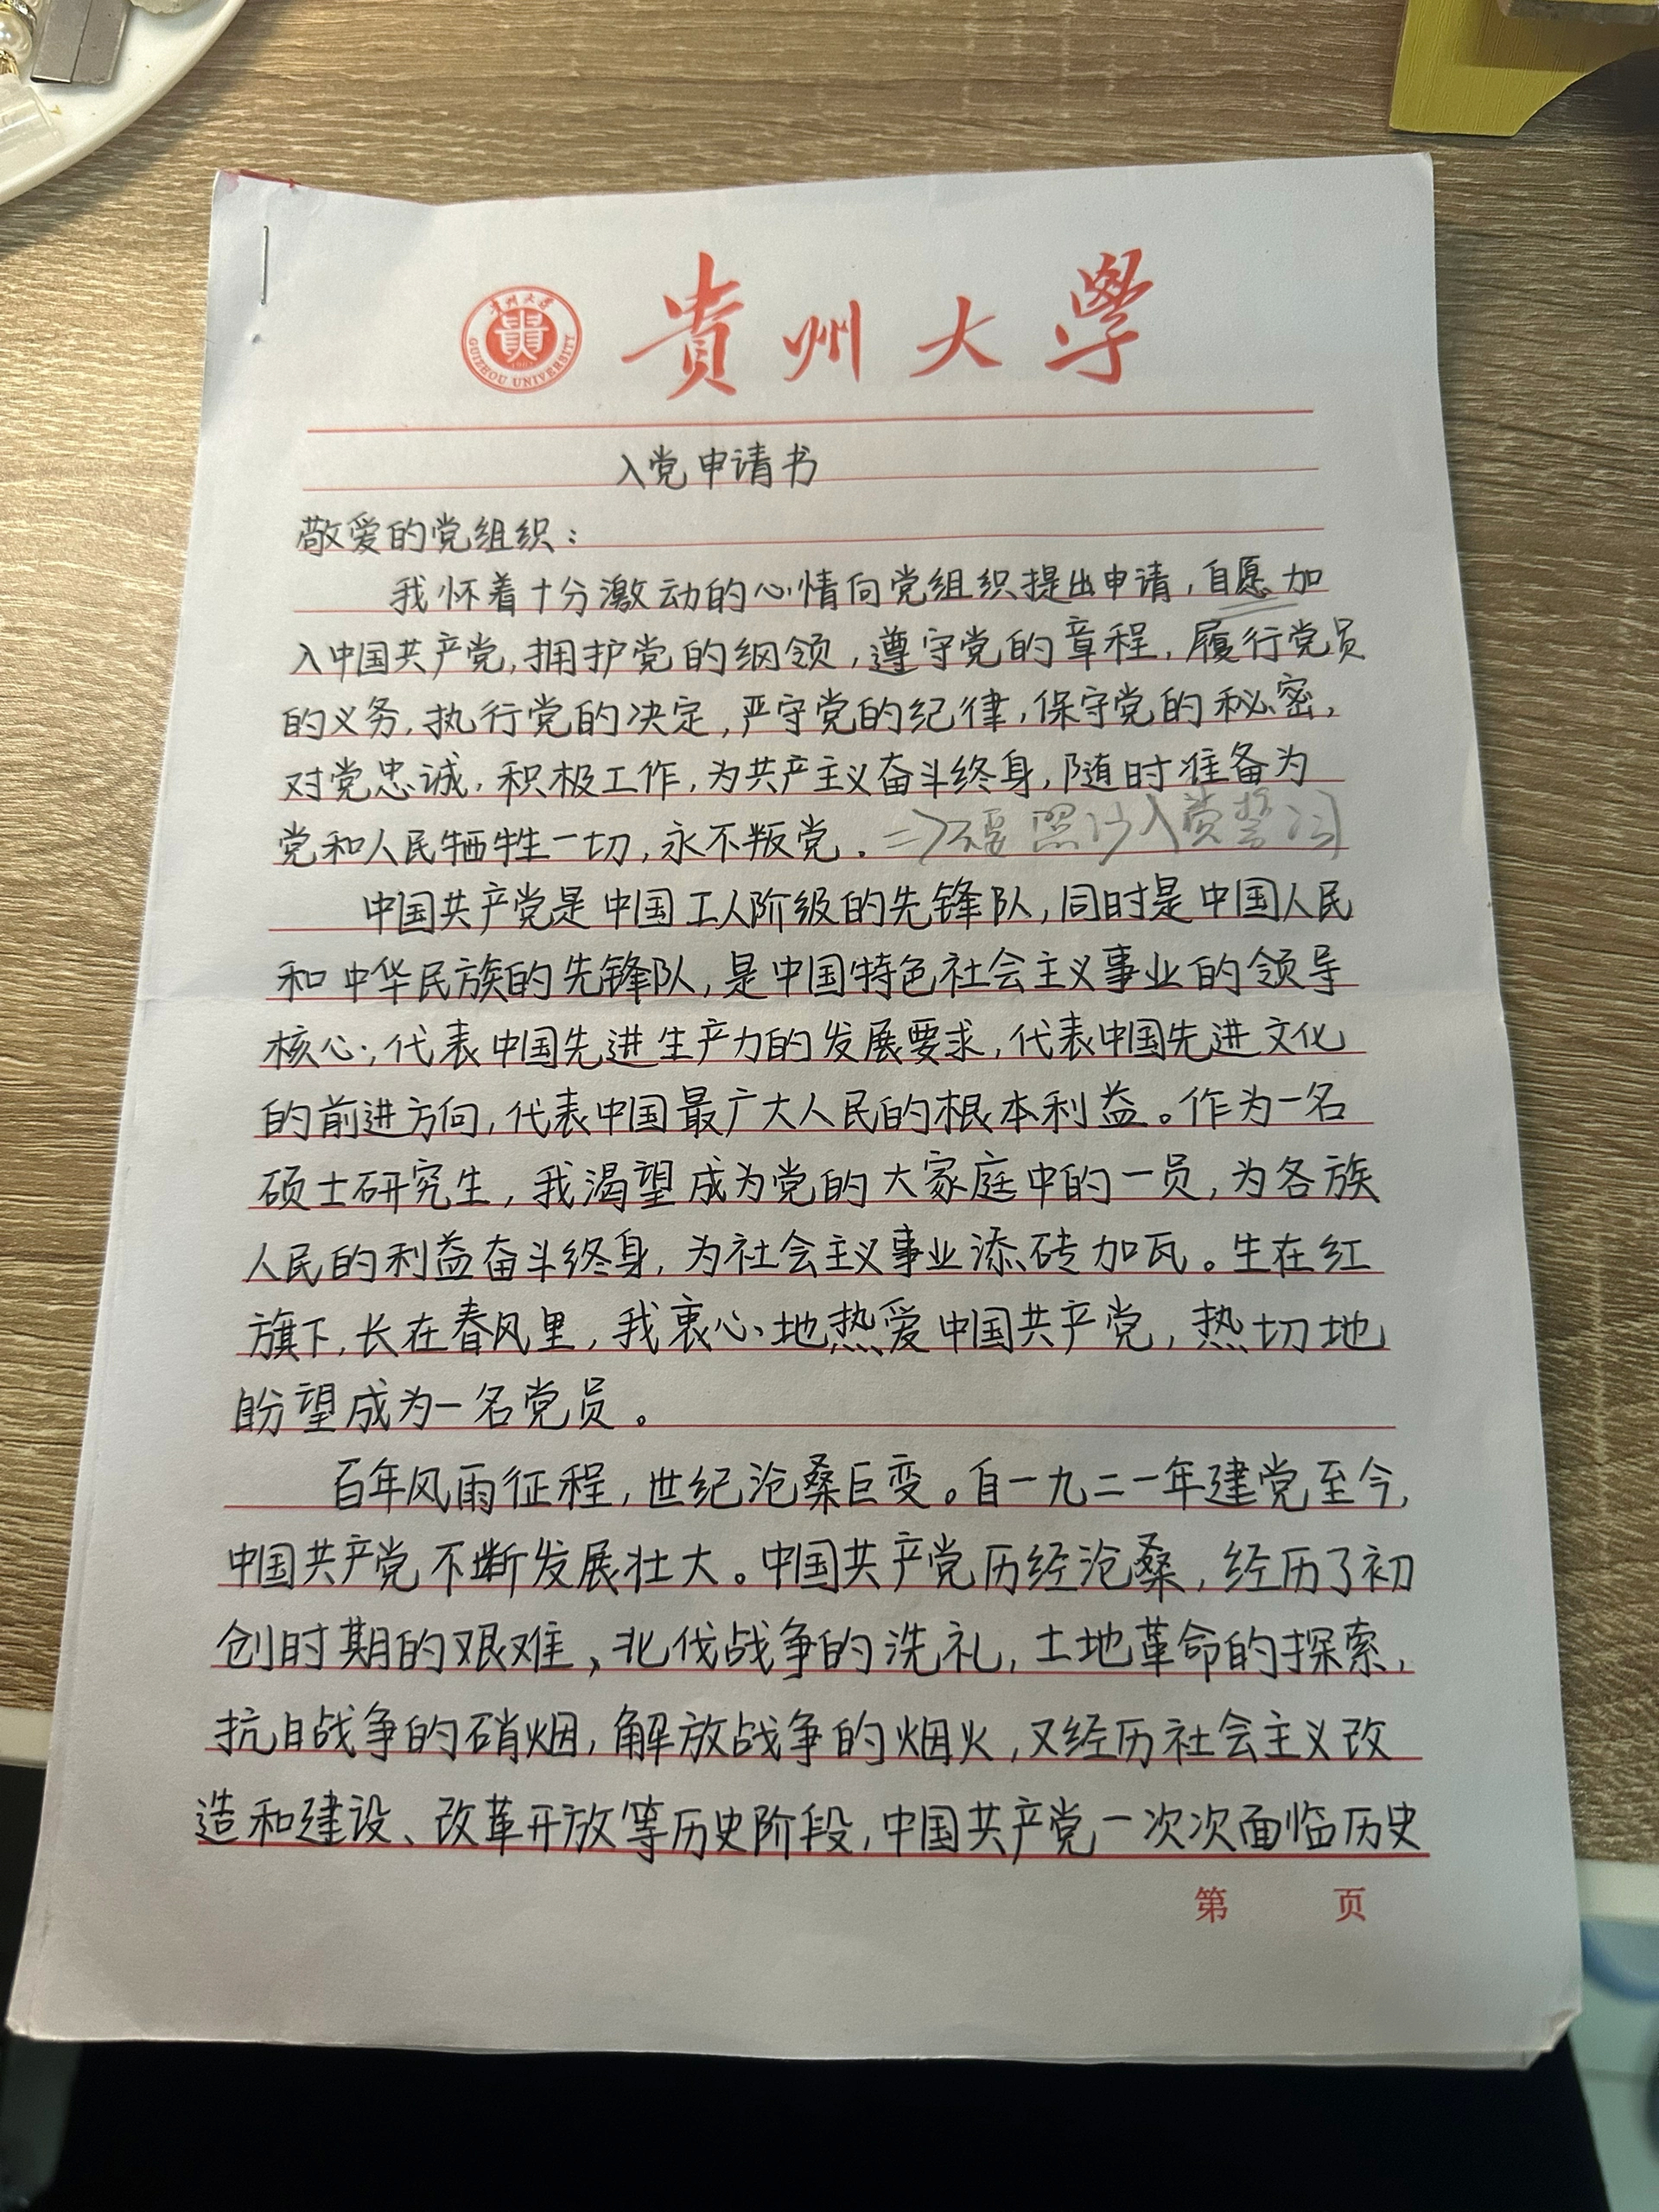 贵州大学
GUIZHOU UNIVERSITY
貴州大學
入党申请书
敬爱的党组织：
我怀着十分激动的心情向党组织提出申请，自愿加
入中国共产党，拥护党的纲领，遵守党的章程，履行党员
的义务，执行党的决定，严守党的纪律，保守党的秘密，
对党忠诚，积极工作，为共产主义奋斗终身，随时准备为
党和人民牺牲一切，永不叛党。=>不要照抄入党誓词
中国共产党是中国工人阶级的先锋队，同时是中国人民
和中华民族的先锋队，是中国特色社会主义事业的领导
核心；代表中国先进生产力的发展要求，代表中国先进文化
的前进方向，代表中国最广大人民的根本利益。作为一名
硕士研究生，我渴望成为党的大家庭中的一员，为各族
人民的利益奋斗终身，为社会主义事业添砖加瓦。生在红
旗下，长在春风里，我衷心地热爱中国共产党，热切地
盼望成为一名党员。
百年风雨征程，世纪沧桑巨变。自一九二一年建党至今，
中国共产党不断发展壮大。中国共产党历经沧桑，经历了初
创时期的艰难、北伐战争的洗礼，土地革命的探索，
抗日战争的硝烟，解放战争的烟火，又经历社会主义改
造和建设、改革开放等历史阶段，中国共产党一次次面临历史
第 页